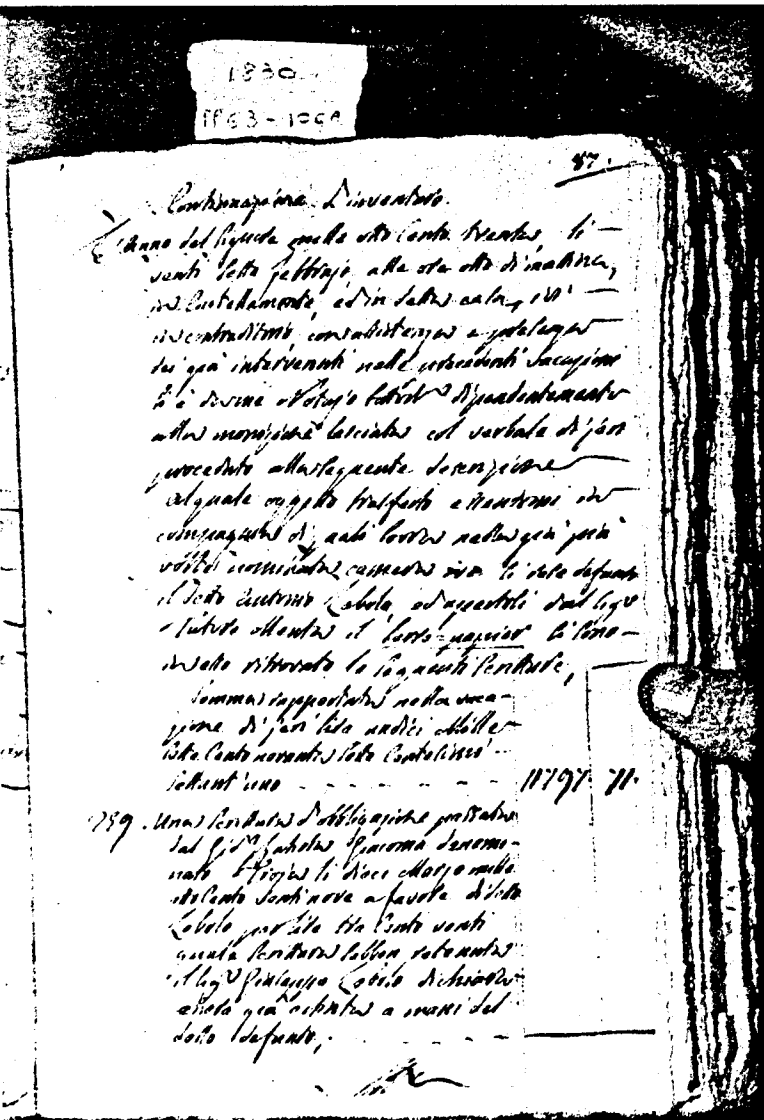 1830
PP 63-1058
87.
Continuazione d'inventaro.
L'anno del Signore mille otto Cento trenta li
venti sette febbrajo, alle ore otto di mattina,
in Castellamonte, ed in detta casa, ivi
in contraditorio, con assistenza e
dei già intervenuti nelle precedenti vacazioni
si è da me Notajo dipendentemente
alla monizione lasciata col verbale di jeri
proceduto alla seguente descrizione
al quale oggetto trasferto essendomi in
compagnia di quali sovra nella già più
volte nominata camera ove li
il detto Antonio, ed apertosi dal Sig.r
il si sono
in esso ritrovato le seguenti Scritture,
Somma rapportata nella vaca-
zione di jeri lire undici Mille
sette Cento novanta sette Centesimi
settant'uno - - - - 11797. 71.
789. Una Scrittura d'obbligazione passata
dal Giacomo denomi-
nato li dieci Marzo mille
otto Cento venti nove a favore di detto
per lire tre Cento venti
quale Scrittura sebben ritenuta
il Sig.r Giuseppe dichiara
essere già a mani del
detto defunto,